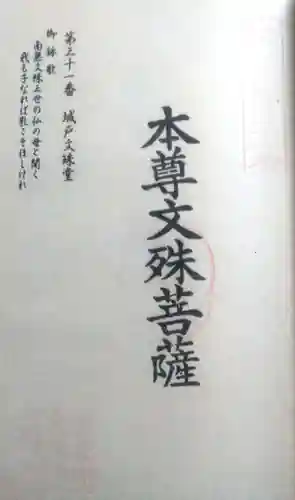 本尊文殊菩薩
第三十一番 城戸文殊堂
御詠歌
南無文殊三世の仏の母と聞く
我も子なれば乳こそほしけれ